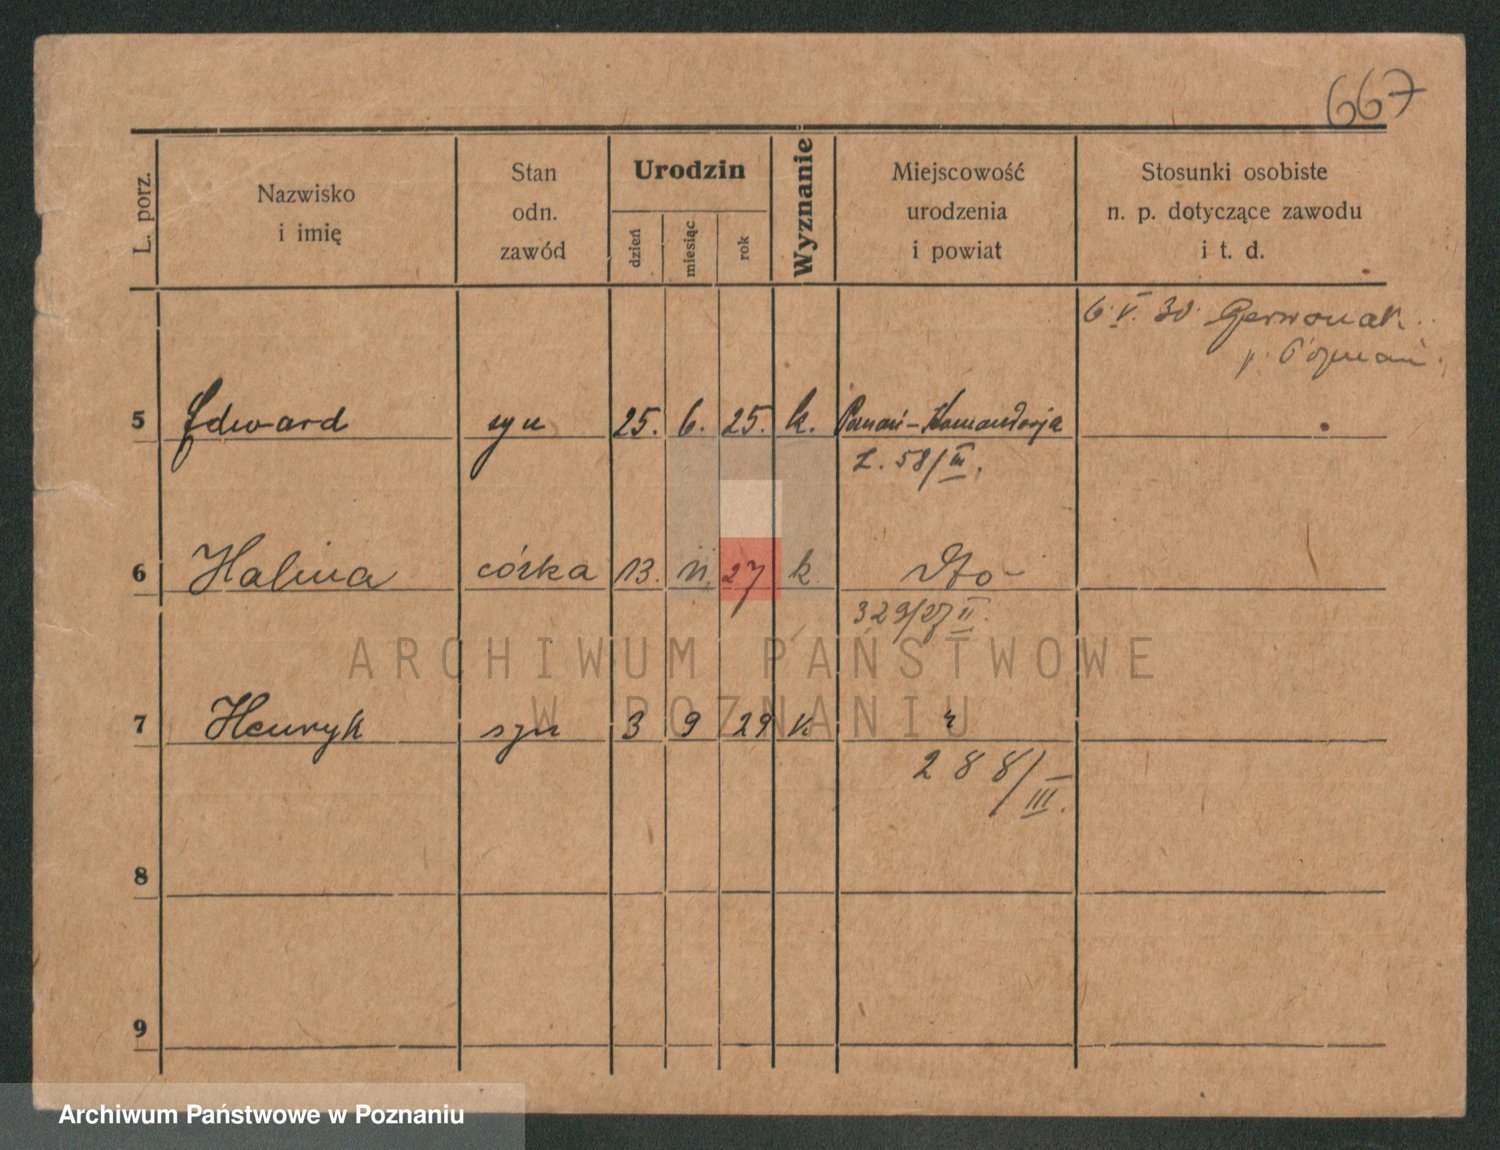 667
L. porz.
Nazwisko
i imię
Stan
odn.
zawód
Urodzin
dzień
miesiąc
rok
Wyznanie
Miejscowość
urodzenia
i powiat
Stosunki osobiste
n. p. dotyczące zawodu
i t. d.
6. V. 30. Gerwonak
p. Poznań.
5 Edward syn 25. 6. 25. k. Poznań-Komandorja
L. 58/III.
6 Halina córka 13. 27 k dto-
329/27 II.
7 Henryk syn 3 9 29 k
288/III.
8
9
ARCHIWUM PAŃSTWOWE
W POZNANIU
Archiwum Państwowe w Poznaniu